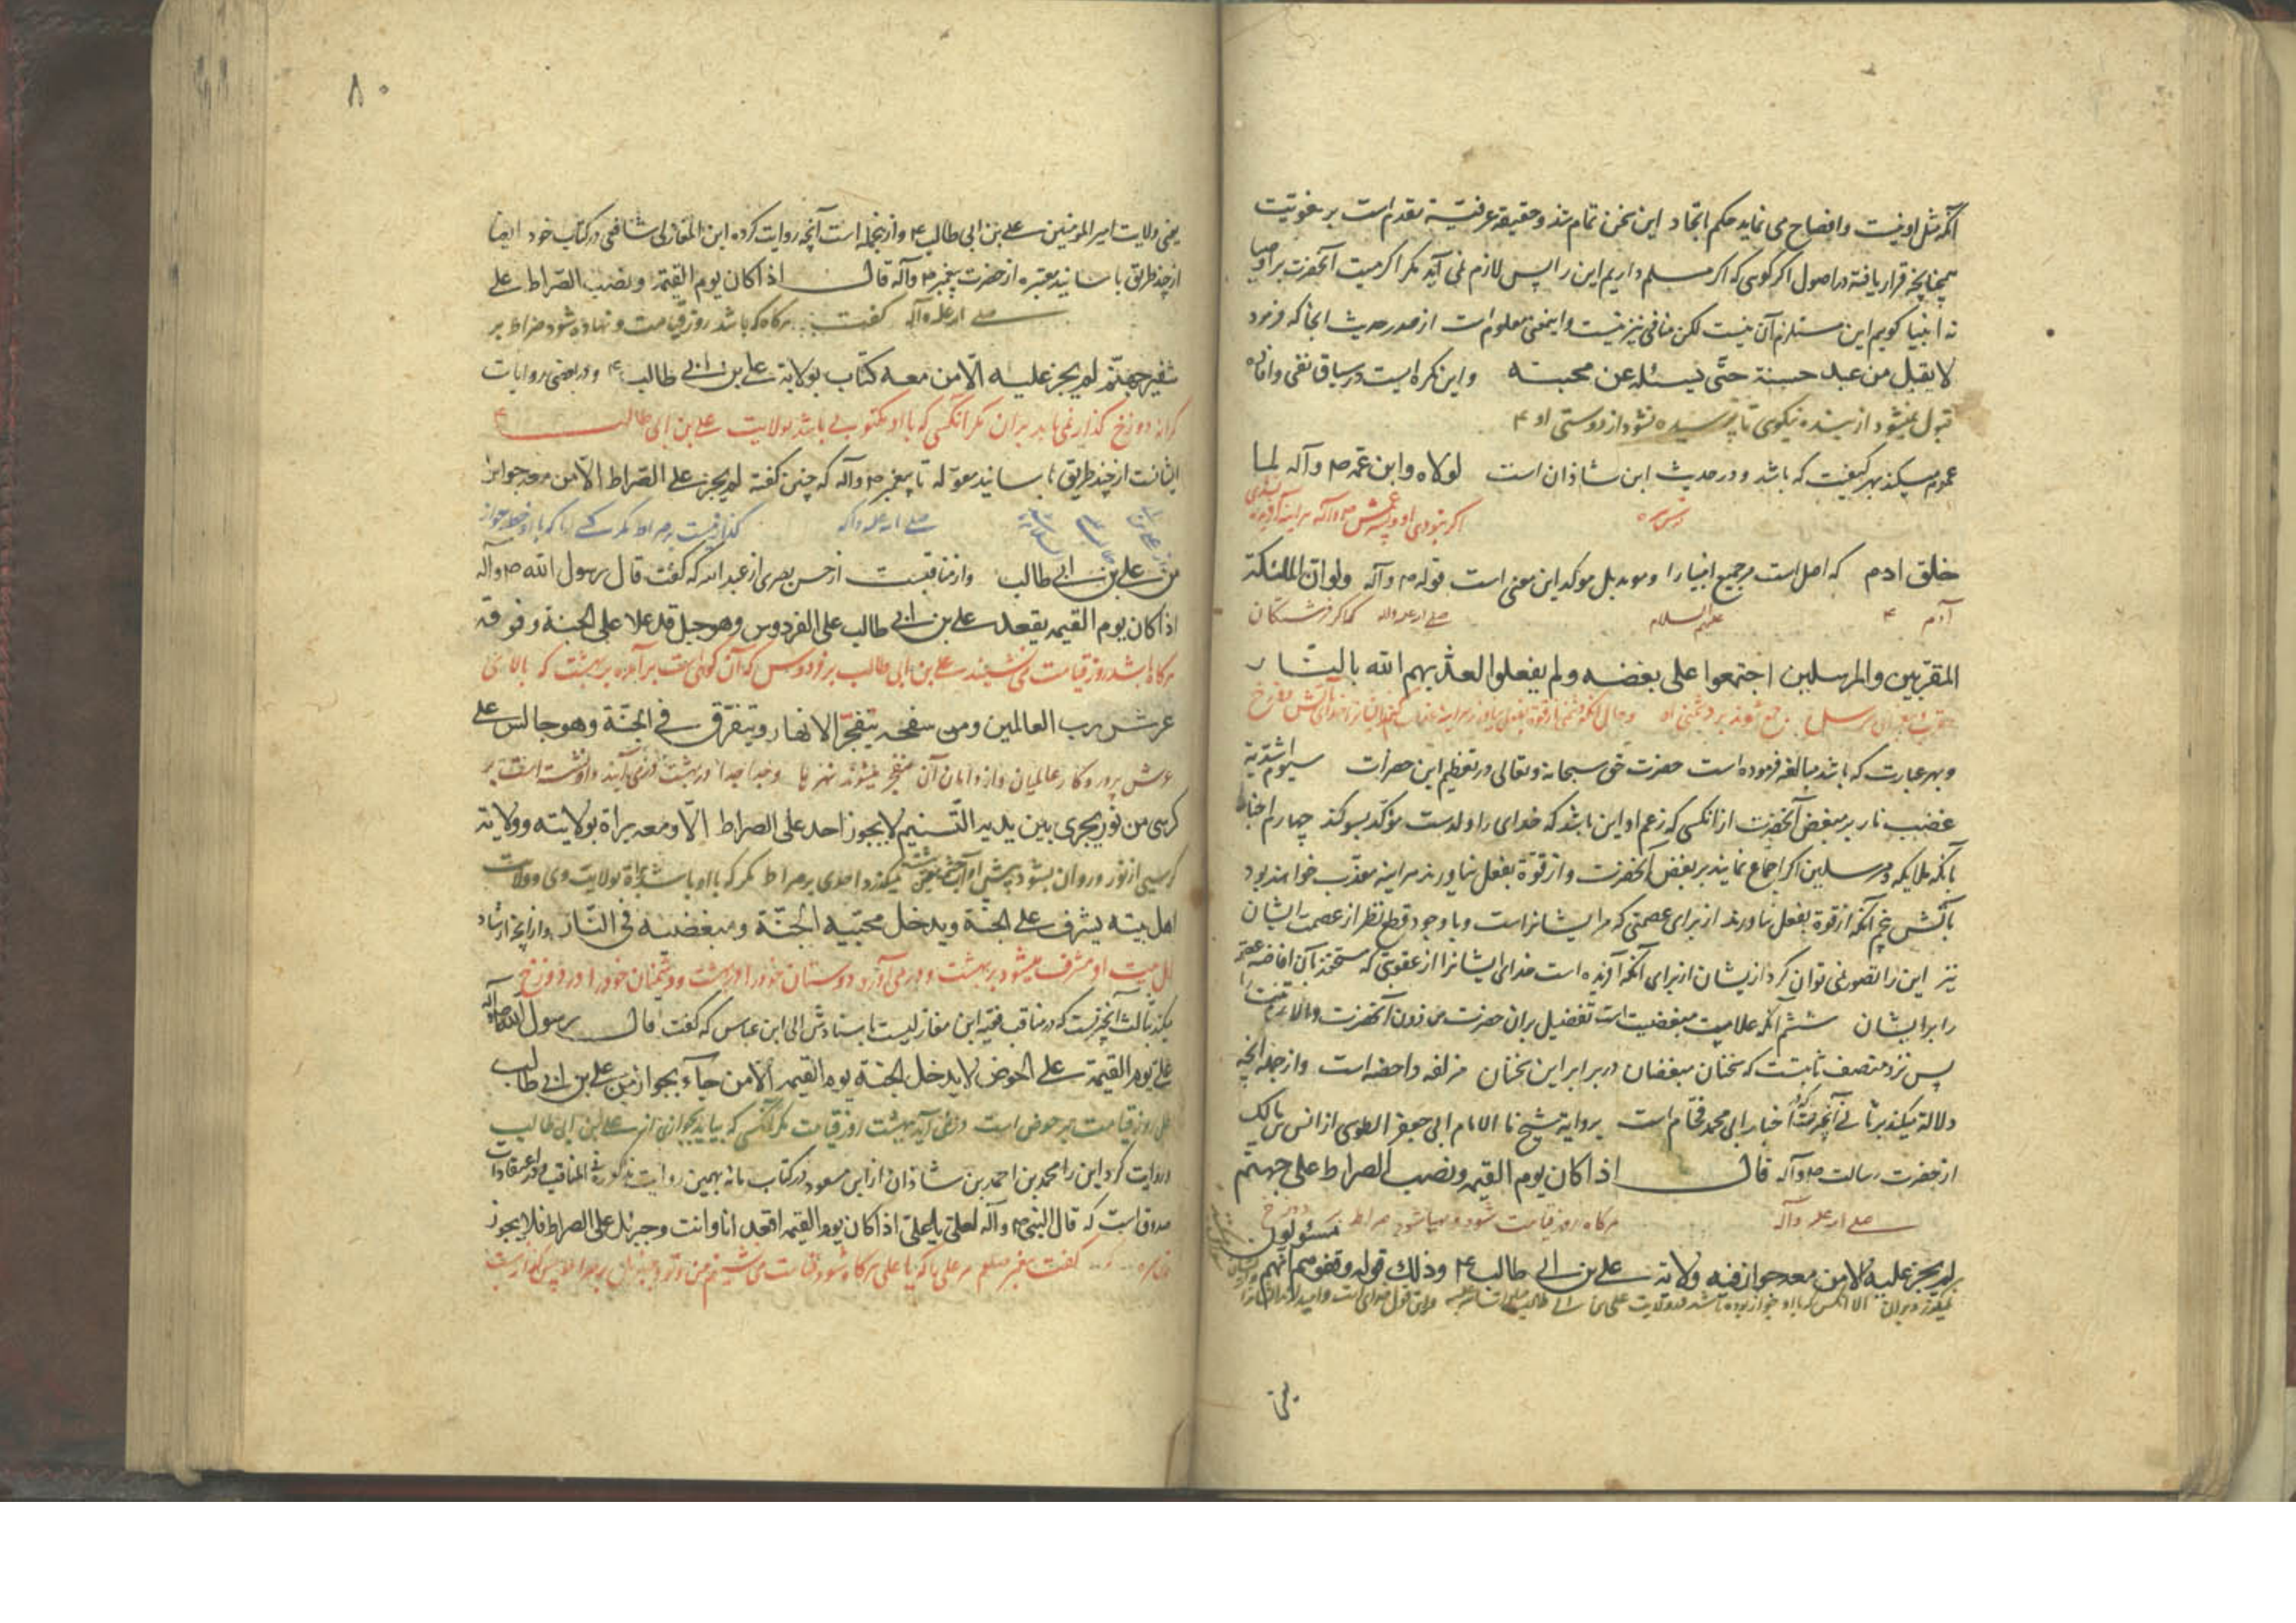 آنکه مثل او نیست و افصاح می نماید حکم اتحاد این سخن تمام شد و حقیقة عرفیته مقدم است بر لغویت
همچنانچه قرار یافته در اصول اگر کوئی که اگر مسلم داریم این را پس لازم نمی آید مگر اکرمیت آنحضرت بر اوصیا
نه انبیا کویم این مستلزم آن نیست لکن منافی نیز نیست و اینمعنی معلوم است از صدر حدیث آنجا که فرمود
لا یقبل من عبد حسنة حتّی یسئله عن محبته و این نکره ایست در سیاق نفی و افاده
قبول نمیشود از بنده نیکوی تا پرسیده نشود از دوستی او ۴
عموم میکند بهر کیفیت که باشد و در حدیث ابن شاذان است لولاه و ابن عمه ص وآله لما
اگر نبودی او و پسر عمش ص وآله هر اینه آفریده نشدی
خلق ادم که اصل است مر جمیع انبیا را و موید بل موکد این معنی است قوله ص وآله ولو ان الملئکة
آدم ۴ علیهم السلام صلی الله علیه واله که اگر فرشتکان
المقرّبین والمرسلین اجتمعوا علی بغضه ولم یفعلوا لعذّبهم الله بالنّار
و بهر عبارت که باشد مبالغه فرموده است حضرت حق سبحانه وتعالی در تعظیم این حضرات سیوم اشدّیة
غضب نار بر مبغض آنحضرت از انکسی که زعم او این باشد که خدای را ولدست مؤکّد بسوکند چهارم اخبار
بآنکه ملایکه و مرسلین اگر اجماع نمایند بر بغض آنحضرت و از قوّة بفعل نیاورند هر اینه معذّب خواهند بود
بآتش پنجم آنکه از قوة بفعل نیاورند از برای عصمتی که مر ایشانراست و با وجود قطع نظر از عصمت ایشان
نیز این را تصور نمی توان کرد از یشان از برای آنکه آفریده است خدای ایشانرا از عقوبتی که مستحقند بآن افاضه
را بر ایشان ششم آنکه علامت مبغضیت است تفضیل بر ان حضرت من دون آنحضرت
پس نزد منصف ثابتست که سخنان مبغضان در برابر این سخنان مزلفه و احضه است و از جمله آنچه
دلالة میکند بر ثانی آنچیزیست که در اخبار ابی محمد فحّام است بروایة شیخنا الامام ابی جعفر الطوسی از انس بن مالک
از حضرت رسالت ص وآله قال اذا کان یوم القیمه ونصب الصراط علی جهنّم
صلی الله علیه وآله هرکاه روز قیامت شود و بپا شود صراط بر دوزخ
لم یجز علیه الا من معه جواز فیه ولایة علی بن ابی طالب ۴ وذلک قوله وقفوهم انّهم مسئولون
یعنی
۸۰
یعنی ولایت امیر المومنین علی بن ابی طالب ۴ و از نجمله است آنچه روایت کرده ابن المغازلی شافعی در کتاب خود ایضا
از چند طریق باسانید معتبره از حضرت پیغمبر ص وآله قال اذا کان یوم القیمة ونصب الصّراط علی
صلی الله علیه وآله گفت هرکاه که باشد روز قیامت و نهاده شود صراط بر
شفیر جهنّم لم یجز علیه الّا من معه کتاب بولایة علی بن ابی طالب ۴ و در بعضی روایات
کرانه دوزخ گذار نمی یابد بر ان مگر انکسی که با او مکتوبی باشد بولایت علی بن ابی طالب ۴
ایشانست از چند طریق باسانید موله تا پیغمبر ص وآله که چنین کفته لم یجز علی الصّراط الّا من معه جواز
صلی الله علیه وآله
من علی بن ابی طالب و از مناقبست از حسن بصری از عبد الله که گفت قال رسول الله ص وآله
اذا کان یوم القیمه یقعد علی بن ابی طالب علی الفردوس وهو جبل قد علا علی الجنة وفوقه
هرکاه باشد روز قیامت می نشیند علی بن ابی طالب بر فردوس که آن کوهی است بر آمده بر بهشت که بالای
عرش ربّ العالمین ومن سفحه یتفجّر الانهار ویتفرّق فی الجنّة وهو جالس علی
عرش پروردکار عالمیان و از دامان آن منفجر میشوند نهرها و جدا جدا در بهشت در می آیند و او نشسته است بر
کرسی من نور یجری بین یدیه التّسنیم لا یجوز احد علی الصراط الّا ومعه براة بولایته وولایة
کرسیی از نور و روان بشود پیش او آب چشمه نمیگذرد احدی بر صراط مگر که با او باشد براة بولایت وی و ولایت
اهل بیته یشرف علی الجنة ویدخل محبّیه الجنّة ومبغضیه فی النّار
اهل بیت او مشرف میشود بر بهشت و در می آورد دوستان خود را در بهشت و دشمنان خود را در دوزخ
میکند بثالث آنچیزیست که در مناقب فقیه ابن مغازلیست باسنادش الی ابن عباس که گفت قال رسول الله ص وآله
علی یوم القیمة علی الحوض لا یدخل الجنة یوم القیمه الّا من جاء بجواز من علی بن ابی طالب
علی روز قیامت بر حوض است در نمی آید بهشت روز قیامت مگر آنکسی که بیاید بجوازی از علی بن ابی طالب
و روایت کرد این را محمد بن احمد بن شاذان از ابن مسعود در کتاب مائه بهمین روایت مذکوره فی المناقب و در اعتقادات
صدوق است که قال النبی ص وآله لعلی یا علی اذا کان یوم القیمه اقعد انا وانت وجبرئیل علی الصراط فلا یجوز